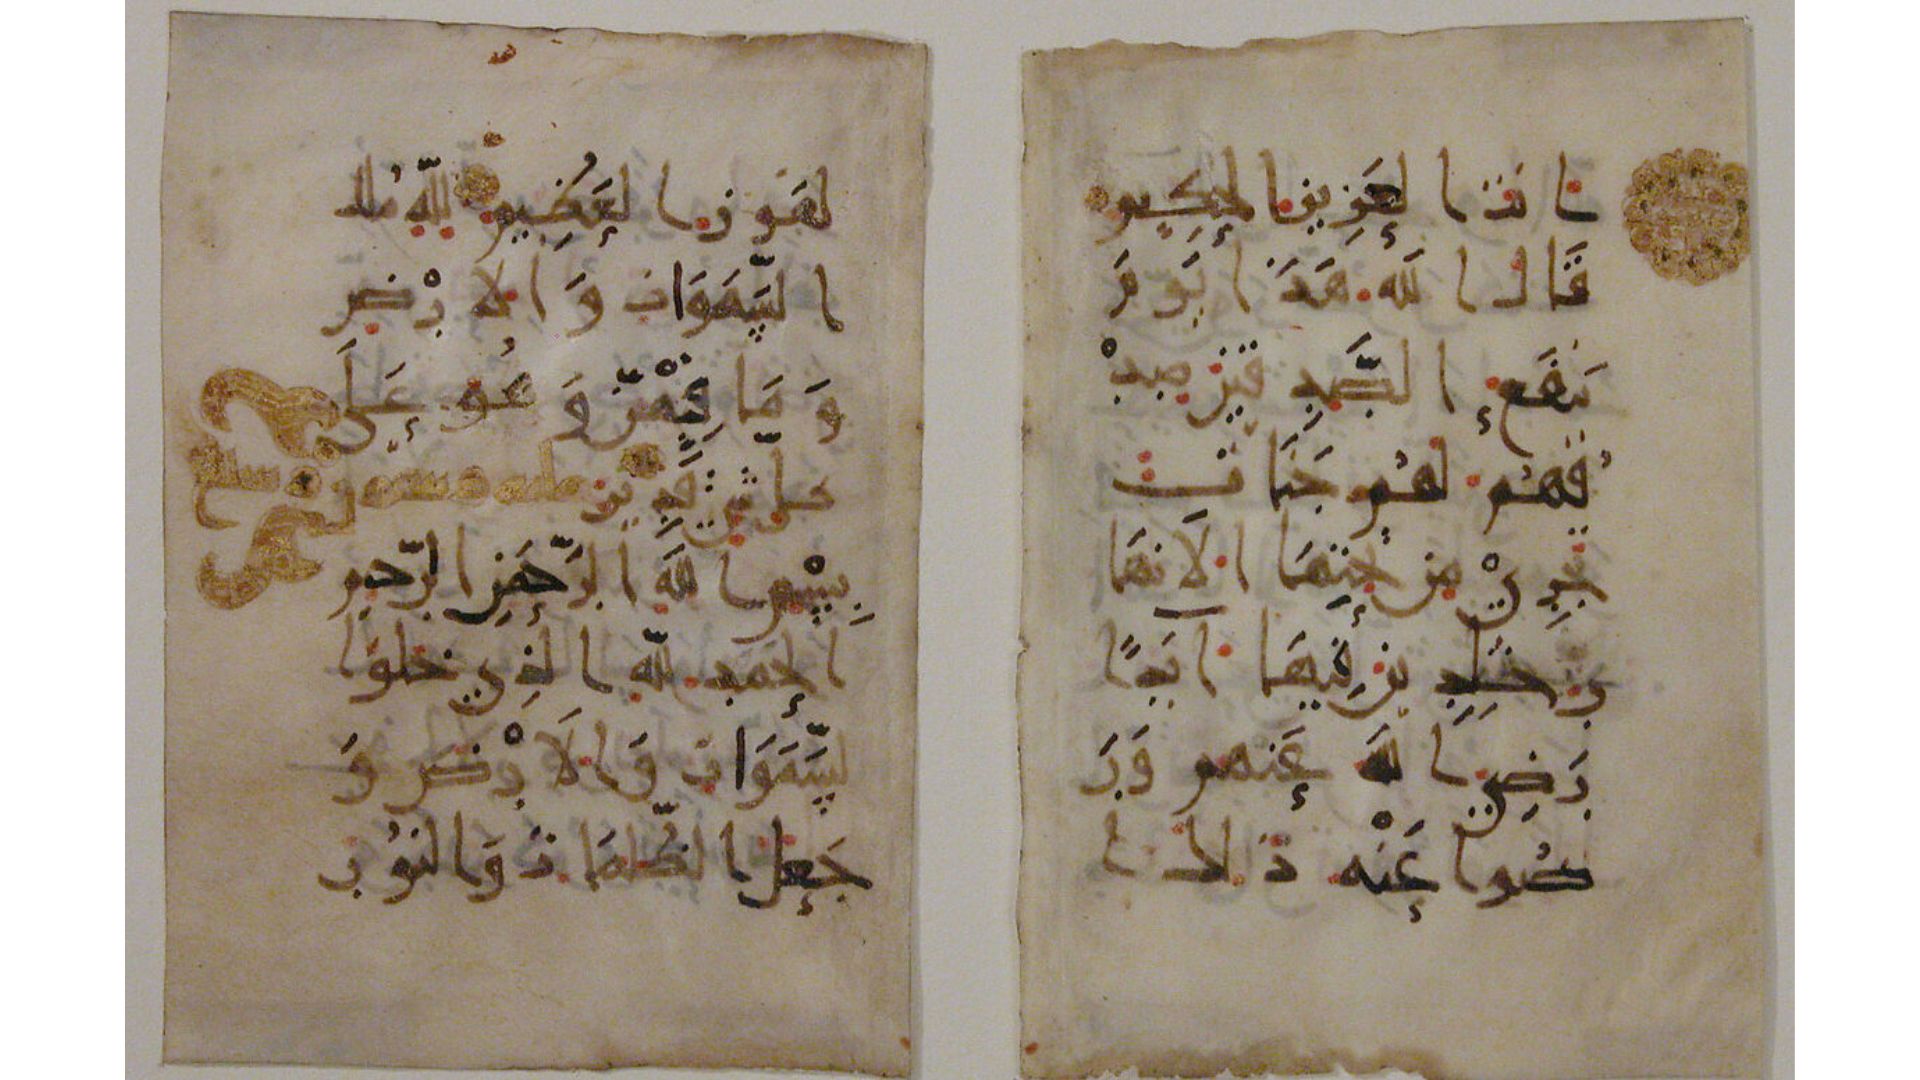 انت العزيز الحكيم
قال الله هذا يوم
ينفع الصدقين صد
قهم لهم جنات
تجري من تحتها الانها
ر خلدين فيها ابدا
رضي الله عنهم ور
ضوا عنه ذلك ا
لفوز العظيم لله ملك
السموات والارض
وما فيهن وهو على
كل شي قدير
بسم الله الرحمن الرحيم
الحمد لله الذي خلق ا
لسموات والارض و
جعل الظلمات والنور